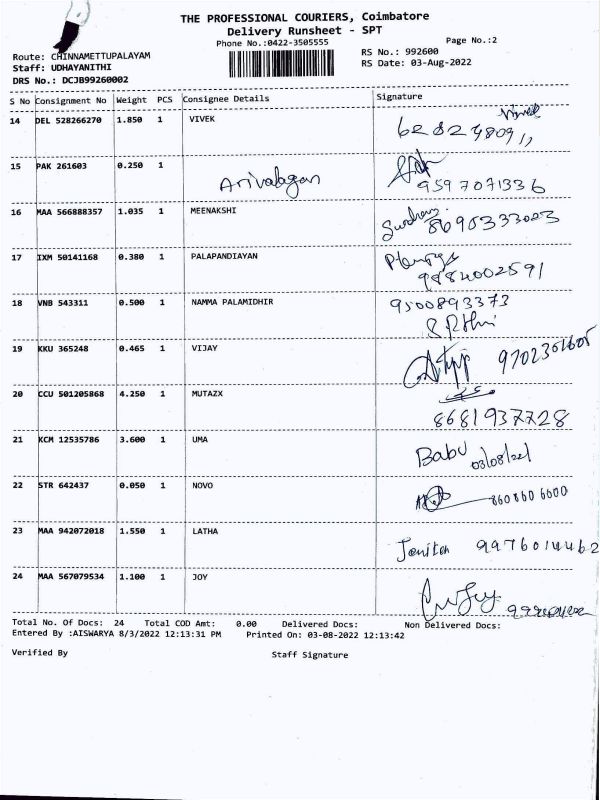 THE PROFESSIONAL COURIERS, Coimbatore
Delivery Runsheet - SPT
Phone No.:0422-3505555
Page No.:2
Route: CHINNAMETTUPALAYAM
RS No.: 992600
Staff: UDHAYANITHI
RS Date: 03-Aug-2022
DRS No.: DCJB99260002
S No Consignment No Weight PCS Consignee Details Signature
14 DEL 528266270 1.850 1 VIVEK Vivek
15 PAK 261603 0.250 1 Arivalagan
9597071336
16 MAA 566888357 1.035 1 MEENAKSHI
8695333023
17 IXM 50141168 0.380 1 PALAPANDIAYAN
9884002591
18 VNB 543311 0.500 1 NAMMA PALAMIDHIR 9500893373
19 KKU 365248 0.465 1 VIJAY 9702361605
20 CCU 501205868 4.250 1 MUTAZX
8681937728
21 KCM 12535786 3.600 1 UMA Babu 03/08/22
22 STR 642437 0.050 1 NOVO 860860 6000
23 MAA 942072018 1.550 1 LATHA 9976014462
24 MAA 567079534 1.100 1 JOY
Total No. Of Docs: 24 Total COD Amt: 0.00 Delivered Docs: Non Delivered Docs:
Entered By :AISWARYA 8/3/2022 12:13:31 PM Printed On: 03-08-2022 12:13:42
Verified By Staff Signature